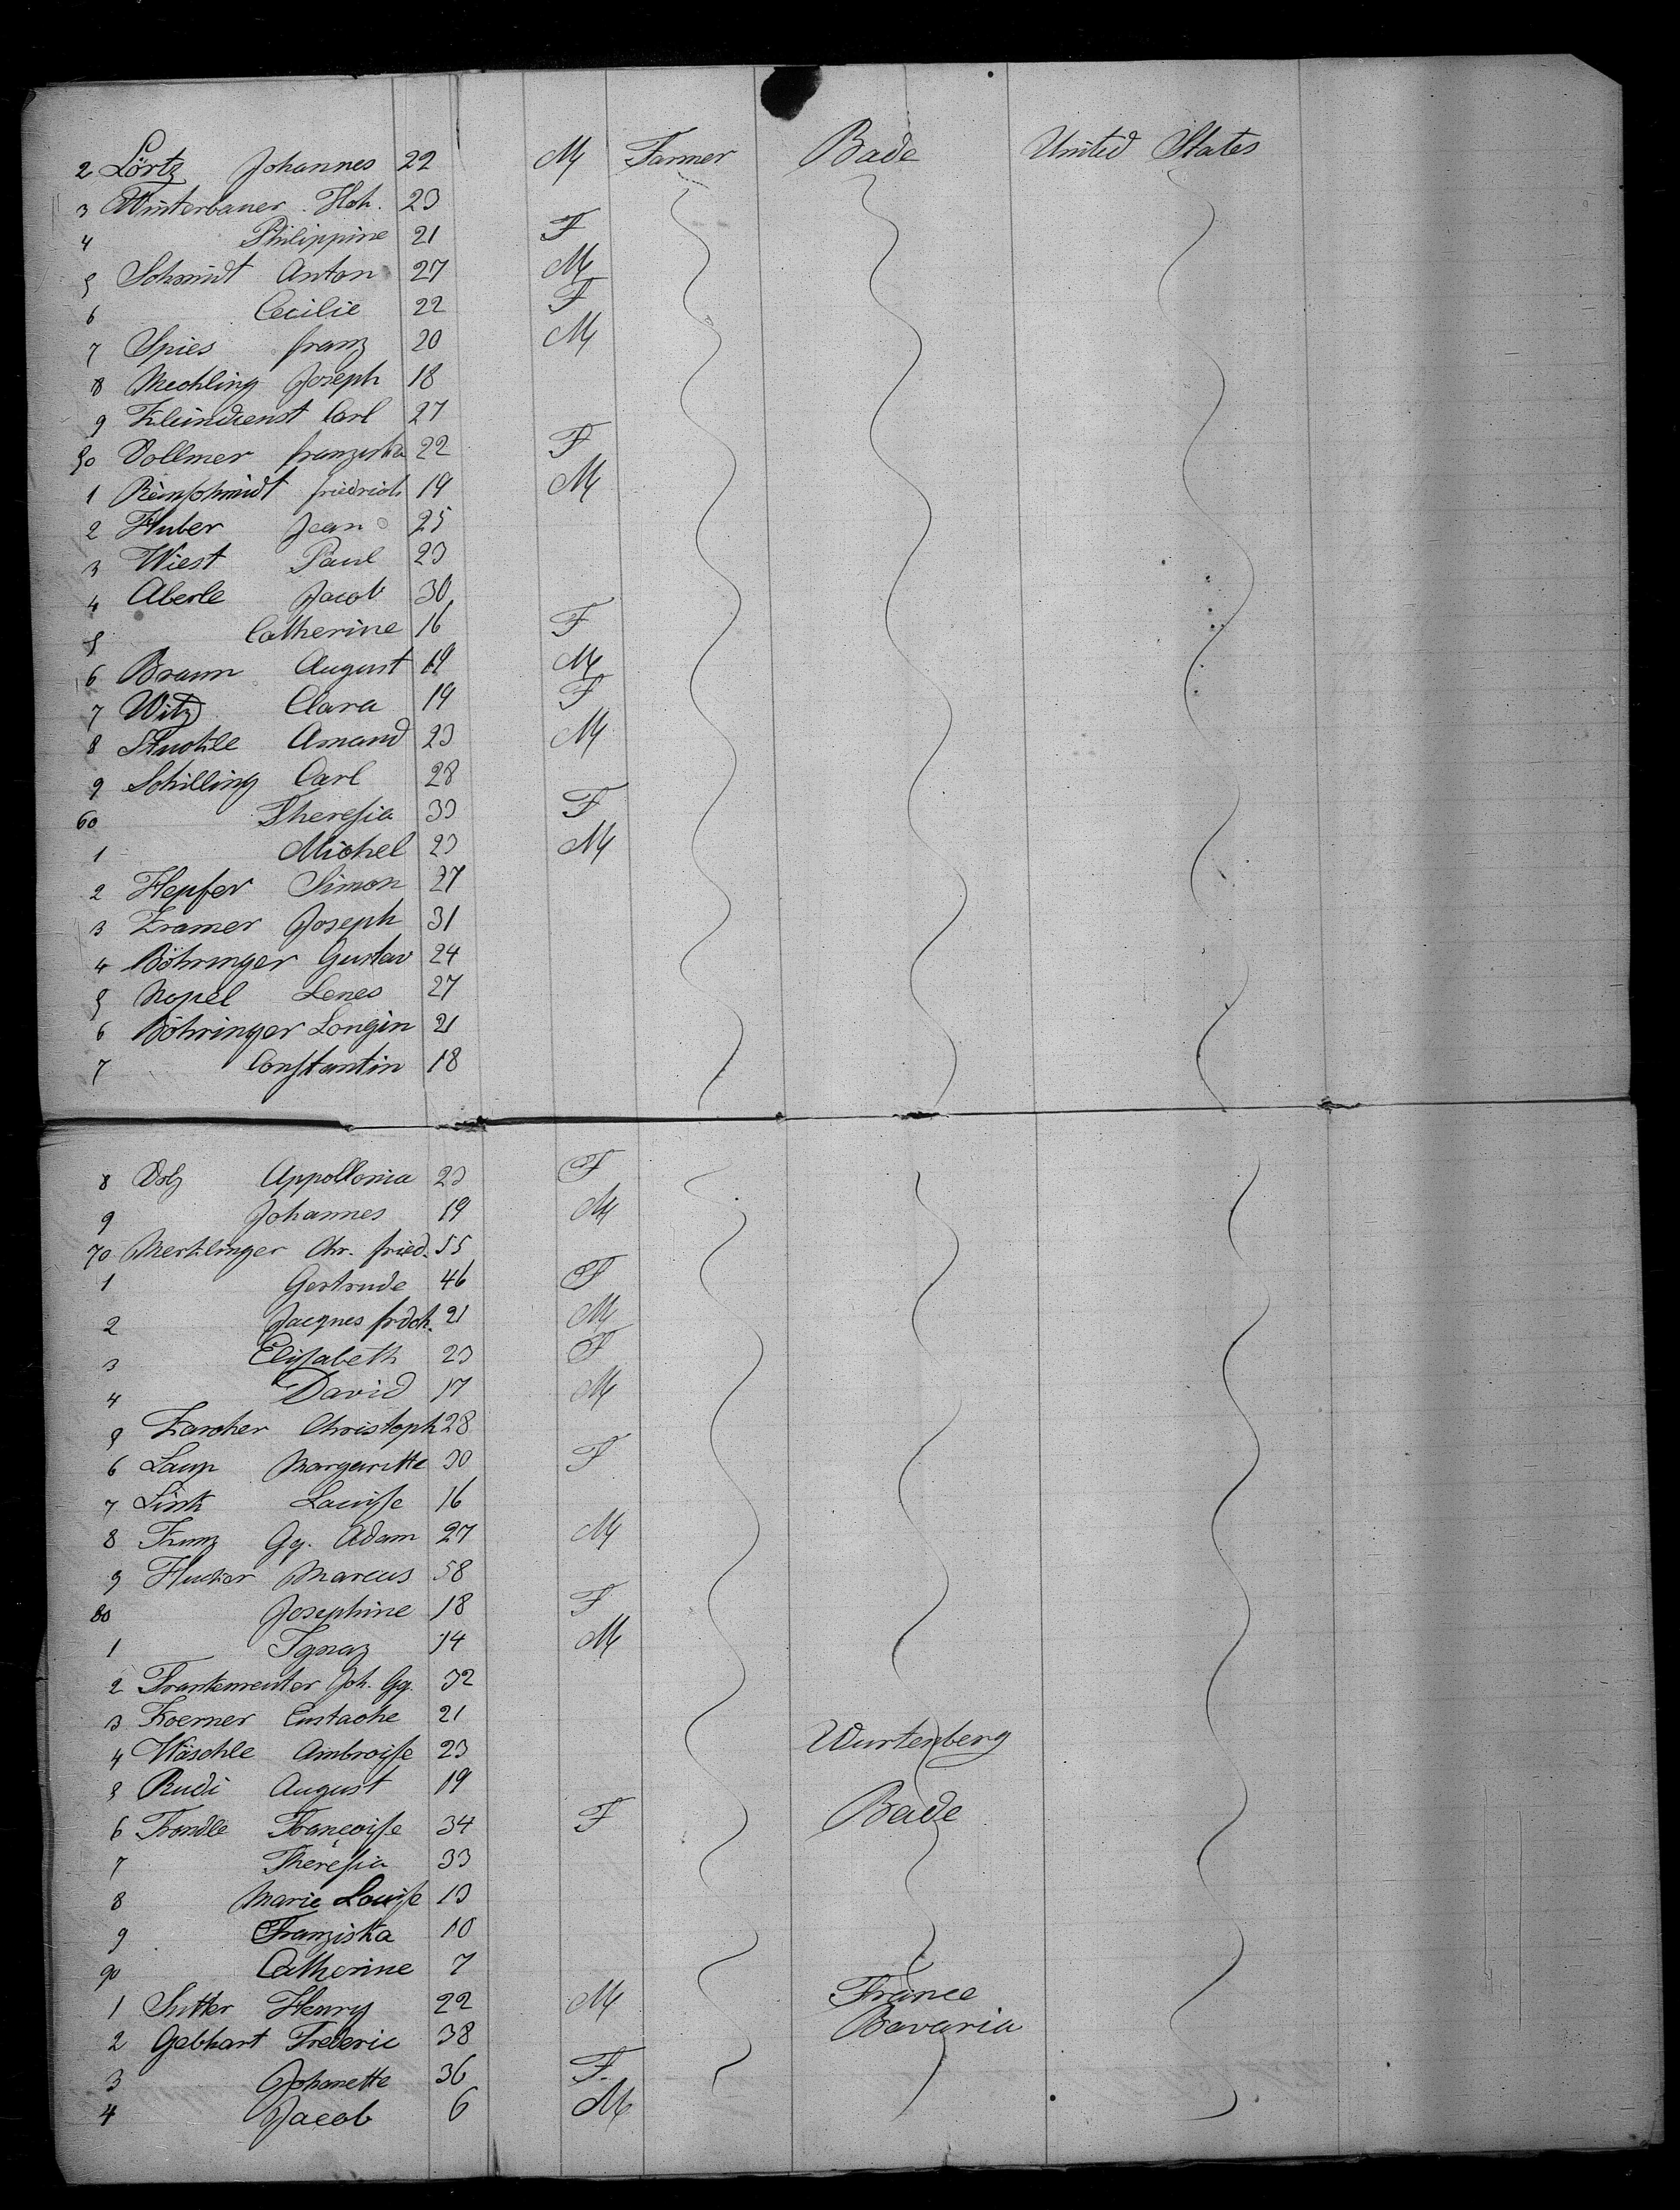 2 Lörtz Johannes 22 M Farmer Bade United States
3 Winterbauer Hch. 23
4 Philippine 21 F
5 Schmidt Anton 27 M
6 Cecilie 22 F
7 Spies franz 20 M
8 Mechling Joseph 18
9 Kleindienst Carl 27
50 Vollmer franziska 22 F
1 Reinschmidt friedrich 19 M
2 Huber Jean 25
3 Wiest Paul 23
4 Aberle Jacob 30
5 Catherine 16 F
6 Braun August 19 M
7 Witz Clara 19 F
8 Stuckle Amand 23 M
9 Schilling Carl 28
60 Theresia 33 F
1 Michel 23 M
2 Hepfer Simon 27
3 Kramer Joseph 31
4 Böhringer Gustav 24
5 Nopel Lenes 27
6 Böhringer Longin 21
7 Constantin 18
8 Volz Appollonia 23 F
9 Johannes 19 M
70 Merklinger Chr. fried. 55
1 Gertrude 46 F
2 Jacques frdch. 21 M
3 Elisabeth 23 F
4 David 17 M
5 Karcher Christoph 28
6 Laup Margaritte 30 F
7 Link Louise 16
8 Kunz Gg. Adam 27 M
9 Hucker Marcus 58
80 Josephine 18 F
1 Ignaz 14 M
2 Frankenreuter Joh. Gg. 32
3 Koerner Eustache 21
4 Wäschle Ambroise 23 Wurtenberg
5 Rudi August 19
6 Trondle Francoise 34 F Bade
7 Theresia 33
8 Marie Louise 13
9 Franziska 10
90 Catherine 7
1 Sutter Henry 22 M France
2 Gebhart Frederic 38 Bavaria
3 Johanette 36 F.
4 Jacob 6 M